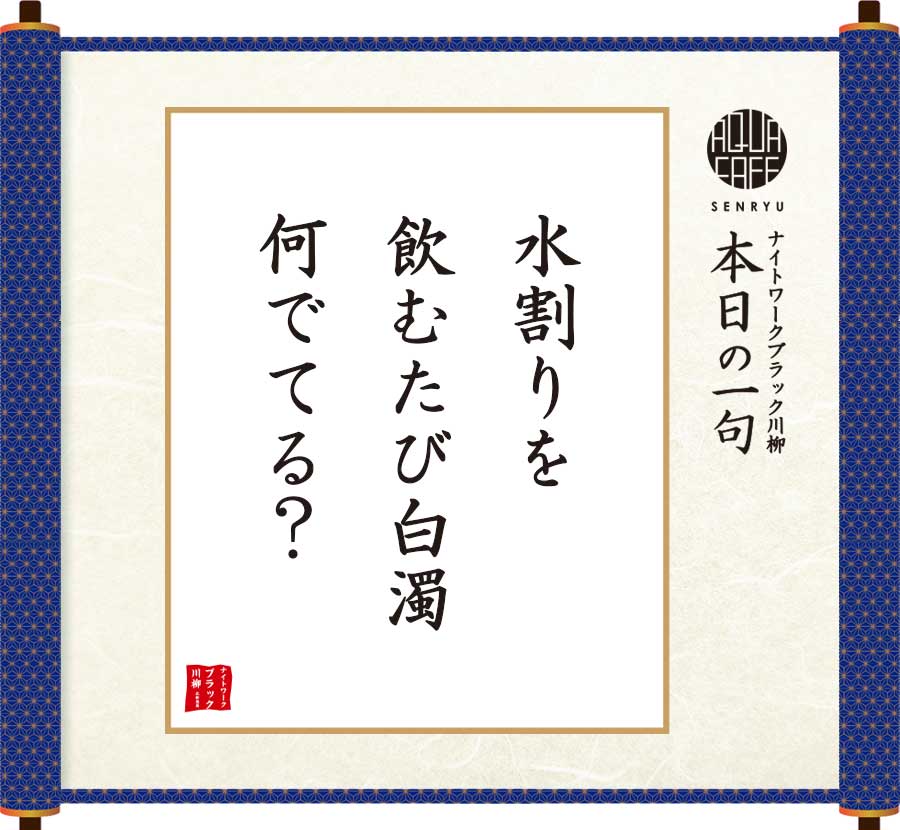 AQUA
CAFE
SENRYU
ナイトワークブラック川柳
本日の一句
水割りを
飲むたび白濁
何でてる?
ナイトワーク
ブラック
川柳